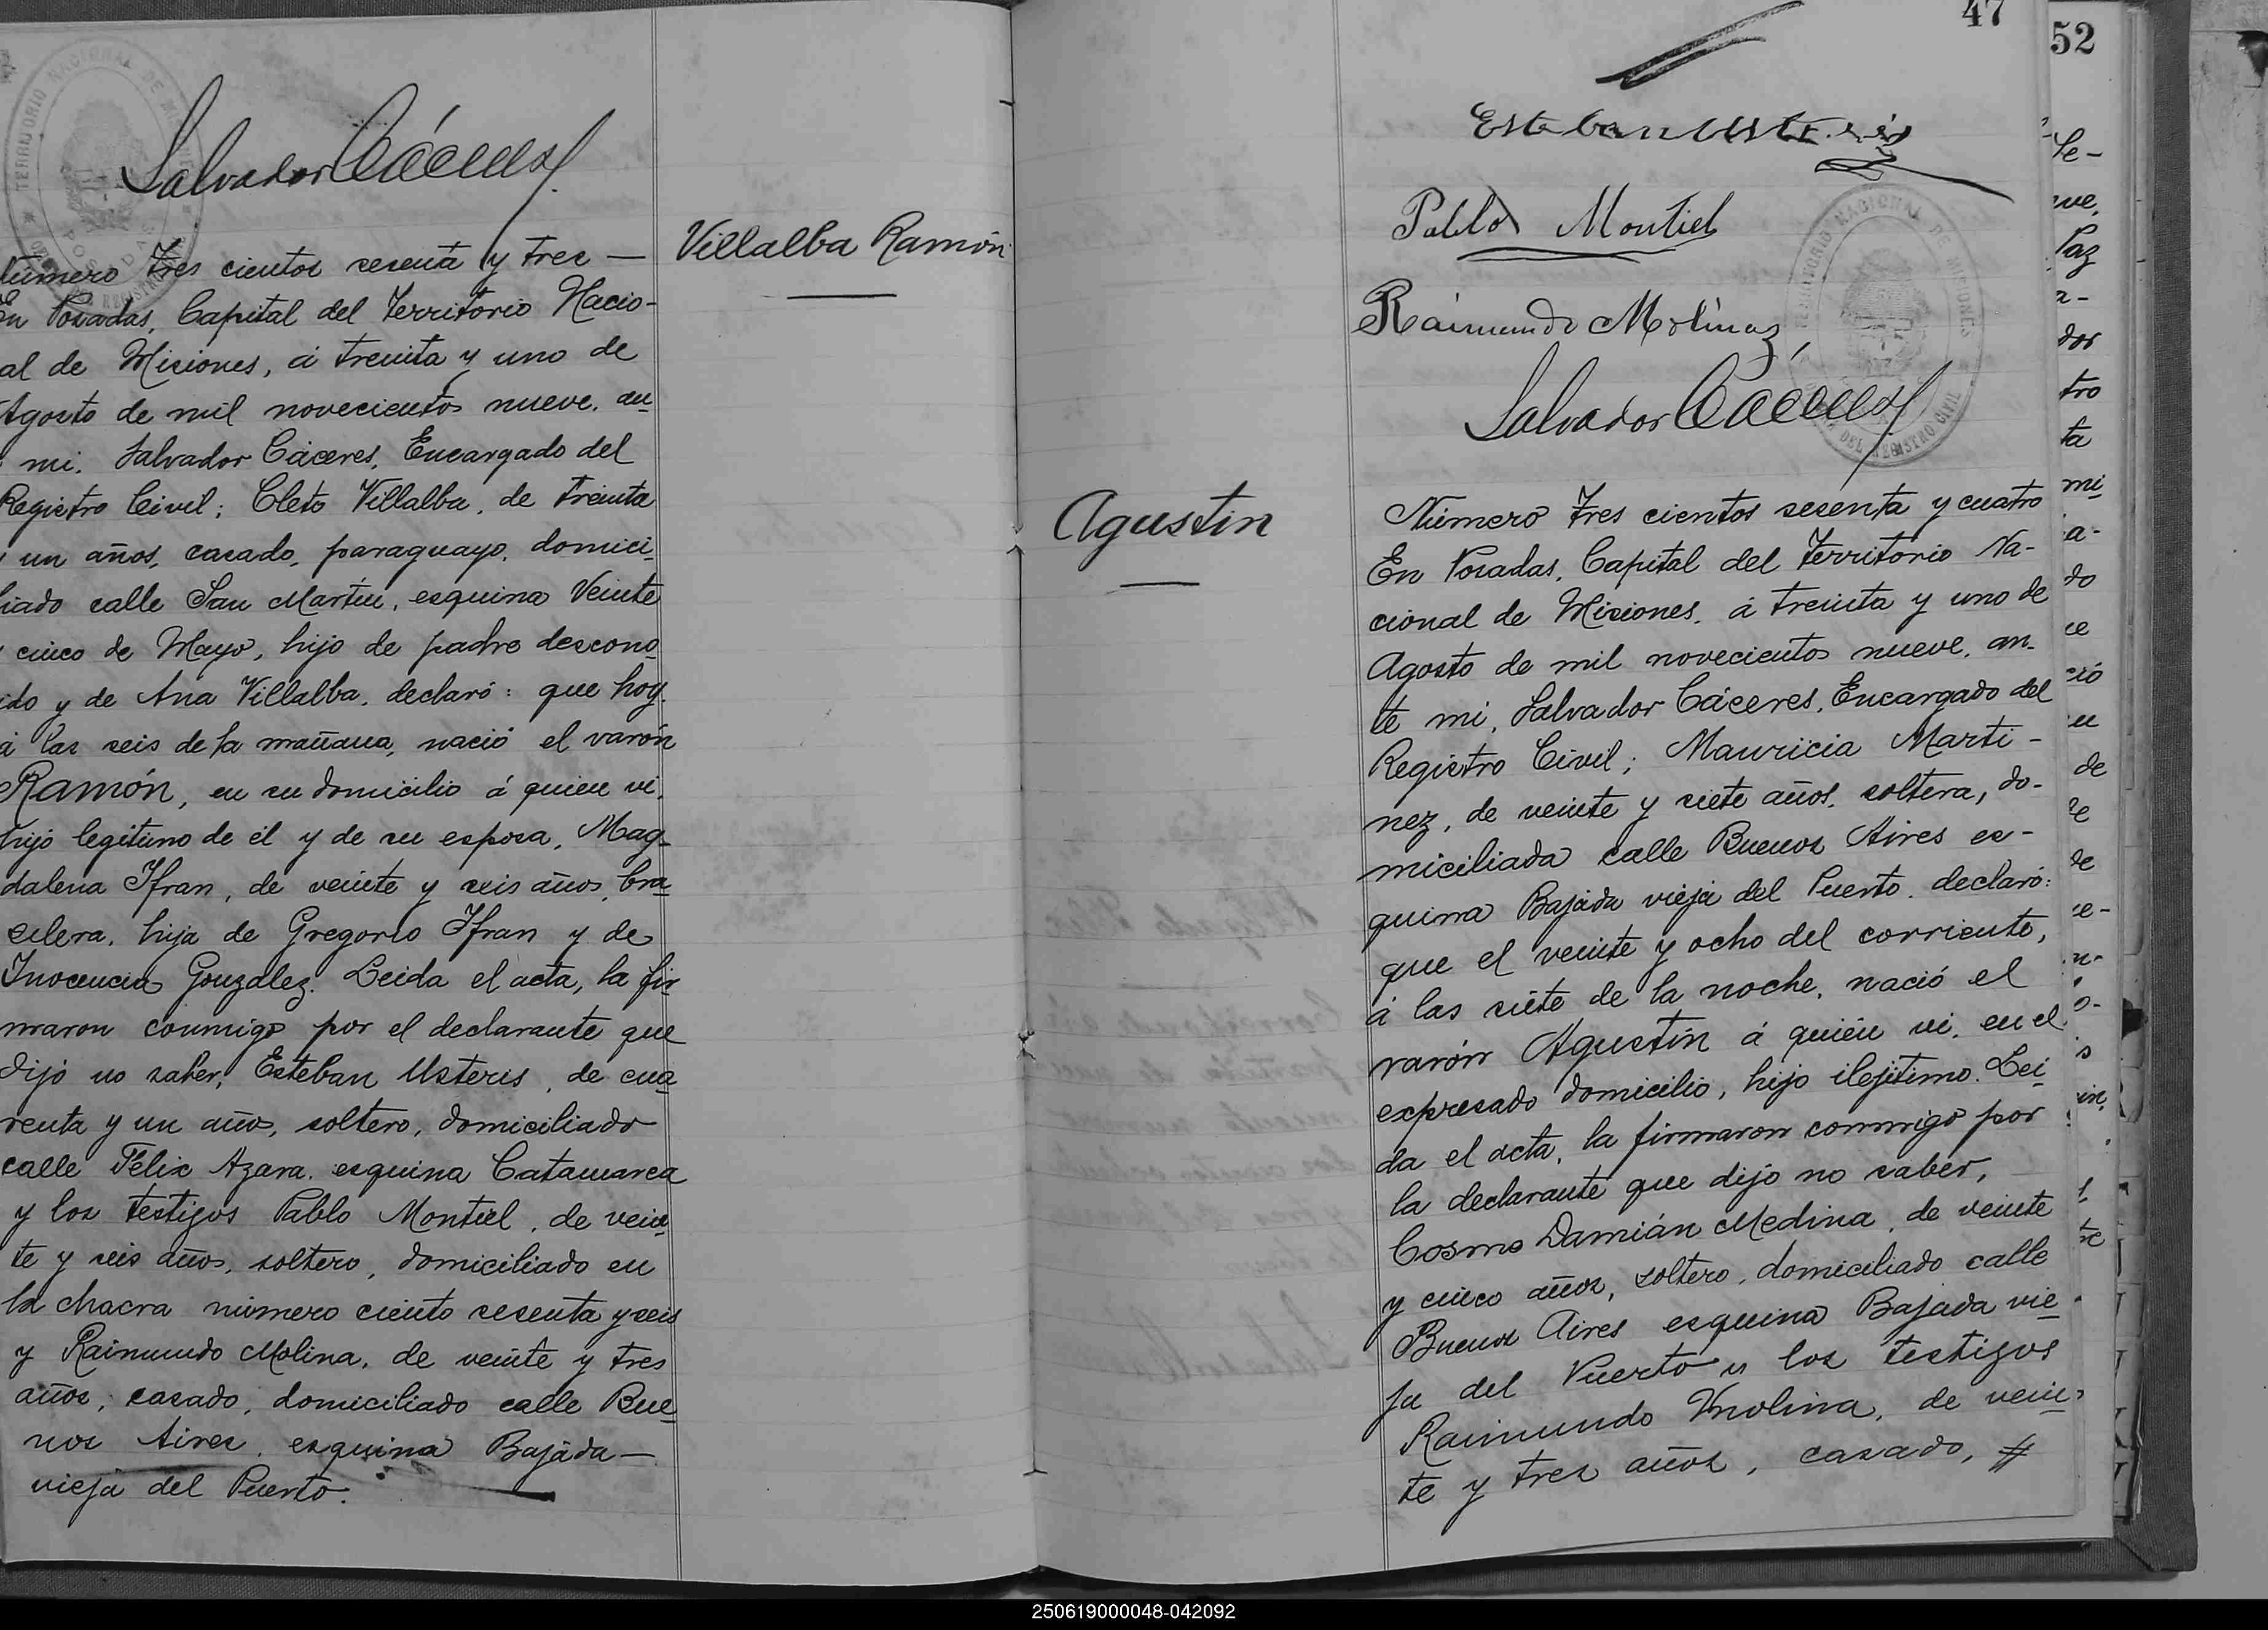 Salvador Cáceres
Número tres cientos sesenta y tres —
En Posadas, Capital del Territorio Nacio-
al de Misiones, á treinta y uno de
Agosto de mil novecientos nueve, an
mi, Salvador Cáceres, Encargado del
Registro Civil; Cleto Villalba, de treinta
y un años, casado, paraguayo, domici-
liado calle San Martin, esquina Veinte
y cinco de Mayo, hijo de padre descono
ido y de Ana Villalba, declaró: que hoy
á las seis de la mañana, nació el varón
Ramón, en su domicilio á quien vi,
hijo legitimo de él y de su esposa, Mag-
dalena Ifran, de veinte y seis años, bra
silera, hija de Gregorio Ifran y de
Inocencia González. Leida el acta, la fir
maron conmigo por el declarante que
dijo no saber, Esteban Usteris, de cua
renta y un años, soltero, domiciliado
calle Félix Azara, esquina Catamarca
y los testigos Pablo Montiel, de vein
te y seis años, soltero, domiciliado en
la chacra número ciento sesenta y seis
y Raimundo Molina, de veinte y tres
años, casado, domiciliado calle Bue
nos Aires, esquina Bajada —
vieja del Puerto.
Villalba Ramón
47
Esteban Usteris
Pablo Montiel
Raimundo Molinas
Salvador Cáceres
TERRITORIO NACIONAL DE MISIONES
DEL REGISTRO CIVIL
Agustin
Número tres cientos sesenta y cuatro
En Posadas, Capital del Territorio Na-
cional de Misiones, á treinta y uno de
Agosto de mil novecientos nueve, an-
te mi, Salvador Cáceres, Encargado del
Registro Civil; Mauricia Marti-
nez, de veinte y siete años, soltera, do-
miciliada calle Buenos Aires es-
quina Bajada vieja del Puerto, declaró:
que el veinte y ocho del corriente,
á las siete de la noche, nació el
varón Agustín á quién vi, en el
expresado domicilio, hijo ilejitimo. Lei
da el acta, la firmaron conmigo por
la declarante que dijo no saber,
Cosme Damián Medina, de veinte
y cinco años, soltero, domiciliado calle
Buenos Aires esquina Bajada vie
ja del Puerto y los testigos
Raimundo Molina, de vein
te y tres años, casado, #
52
Se-
ve,
Paz
dor
tro
ta
mi
a-
do
ce
ció
de
de
250619000048-042092